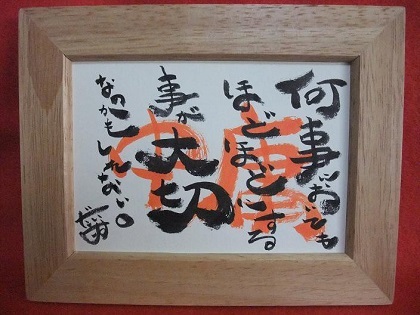 何事においても
ほどほどにする
事が大切
なのかもしれない。
中庸